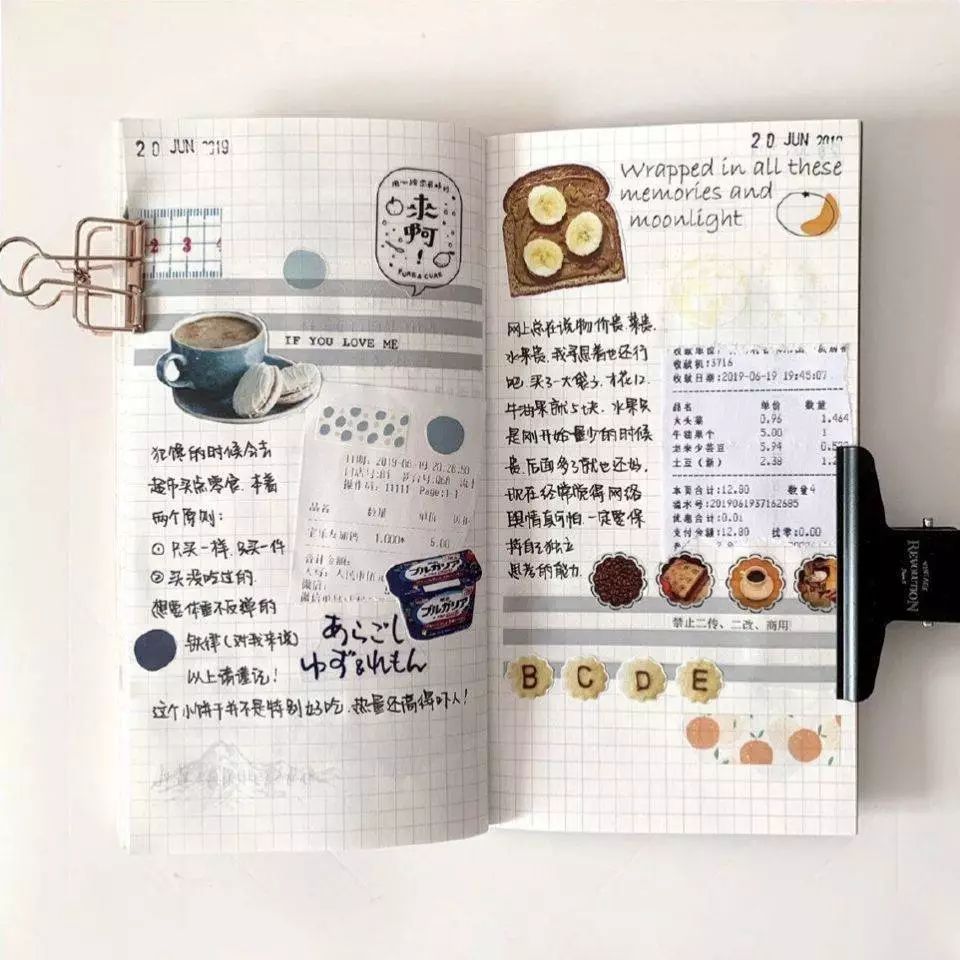 20 JUN 2019
2 3 4
来啊!
IF YOU LOVE ME
日期:2019-06-19 20:26:50
操作码:11111 Page:1-1
品名 数量 单价
1.000* 5.00
合计金额:
微信:
犯馋的时候会去
超市买点零食.本着
两个原则:
①只买一样.只买一件
②买没吃过的.
想要体重不反弹的
铁律(对我来说)
以上请谨记!
这个小饼干并不是特别好吃.热量还高得吓人!
ブルガリア
ブルガリア
あらごし
ゆず&れもん
20 JUN 2019
Wrapped in all these
memories and
moonlight
网上总在说物价贵.菜贵.
水果贵.我寻思着也还行
吧.买了一大袋子.才花12.
牛油果就5块.水果只
是刚开始量少的时候
贵.后面多了就也还好.
现在经常觉得网络
舆情真可怕.一定要保
持自己独立
思考的能力.
收款机:3716
收款日期:2019-06-19 19:45:07
品名 单价 数量
大头菜 0.96 1.464
牛油果个 5.00 1
5.94
土豆(新) 2.38
本页合计:12.80 数量4
流水号:2019061937162685
优惠合计:0.01
支付金额:12.80 找零:0.00
禁止二传、二改、商用
B C D E
REVOLUTION